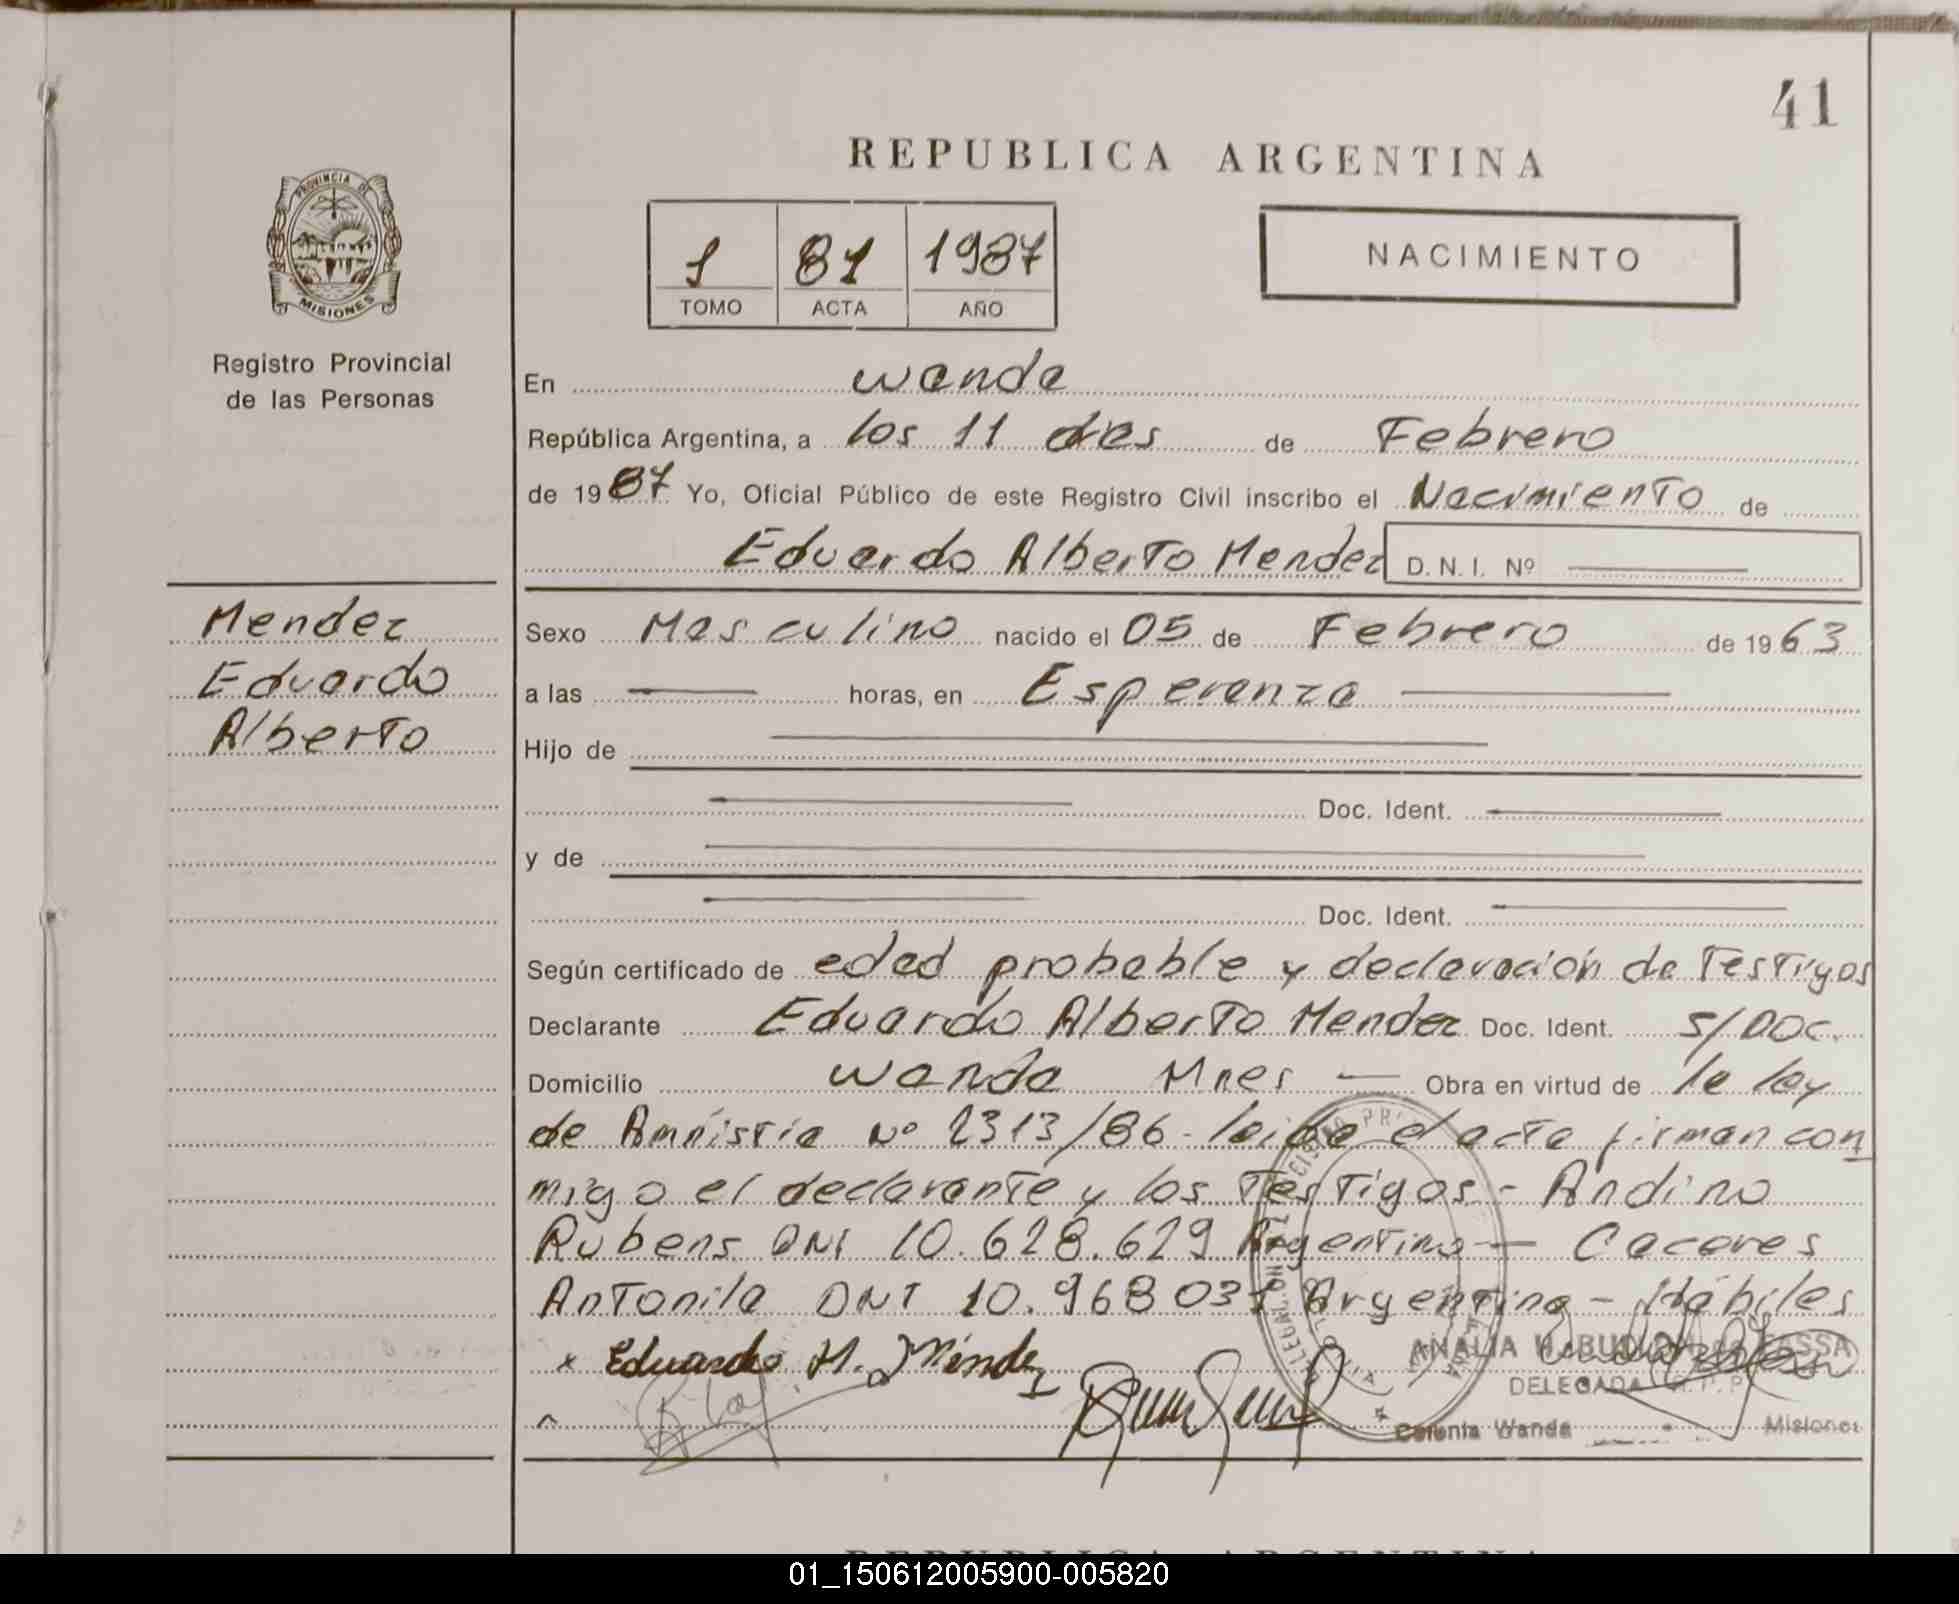 41
REPUBLICA ARGENTINA
PROVINCIA DE
MISIONES
1 81 1987
TOMO ACTA AÑO
NACIMIENTO
Registro Provincial
de las Personas
En wanda
República Argentina, a los 11 dias de Febrero
de 1987 Yo, Oficial Público de este Registro Civil inscribo el Nacimiento de
Eduardo Alberto Mendez D.N.I. Nº
Mendez
Eduardo
Alberto
Sexo Masculino nacido el 05 de Febrero de 1963
a las horas, en Esperanza
Hijo de
Doc. Ident.
y de
Doc. Ident.
Según certificado de edad probable y declaración de Testigos
Declarante Eduardo Alberto Mendez Doc. Ident. S/DOC.
Domicilio wanda Mnes — Obra en virtud de la ley
de Amnistia Nº 2313/86 - leida el acta firman con
migo el declarante y los Testigos - Andino
Rubens DNI 10.628.629 Argentino — Caceres
Antonila DNI 10.968.031 Argentina - Hábiles
x Eduardo A. Méndez
ANALIA
DELEGADA R.P.P
Colonia Wanda Misiones
REPUBLICA ARGENTINA
01_150612005900-005820